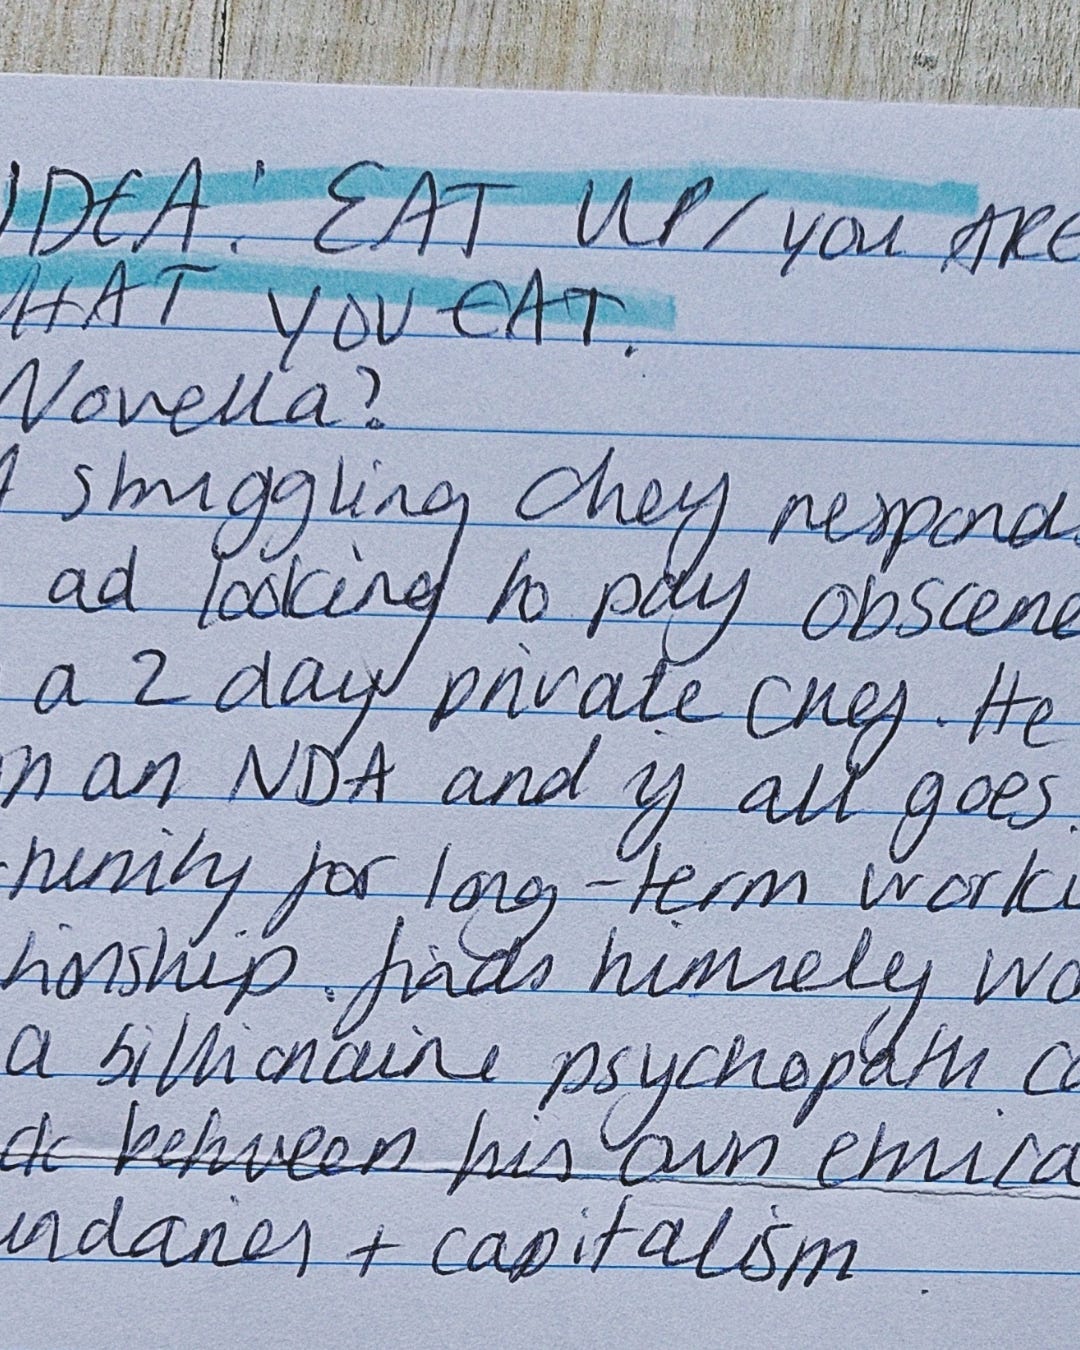 IDEA: EAT UP/YOU ARE
HAT YOU EAT.
Novella?
A struggling chef responds
ad looking to pay obscene
a 2 day private chef. He
n an NDA and if all goes
tunity for long-term worki
tionship. finds himself wo
a billionaire psychopath ca
ck between his own ethica
undaries + capitalism.